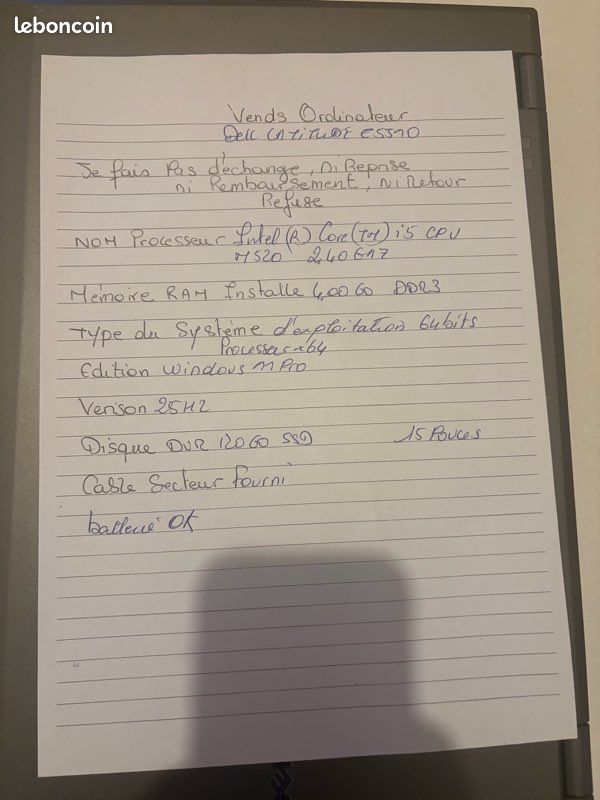 leboncoin
Vends Ordinateur
Dell LATITUDE E5510
Je fais Pas d'échange, ni Reprise
ni Remboursement, ni Retour
Refuse
NOM Processeur Intel(R) Core(TM) i5 CPU
M520 2,40 GHZ
Mémoire RAM Installe 4,00 Go DDR3
Type du Système d'exploitation 64bits
Processeur x64
Edition Windows 11 Pro
Verison 25H2
Disque DUR 120 GO SSD 15 Pouces
Cable Secteur fourni
batterie OK